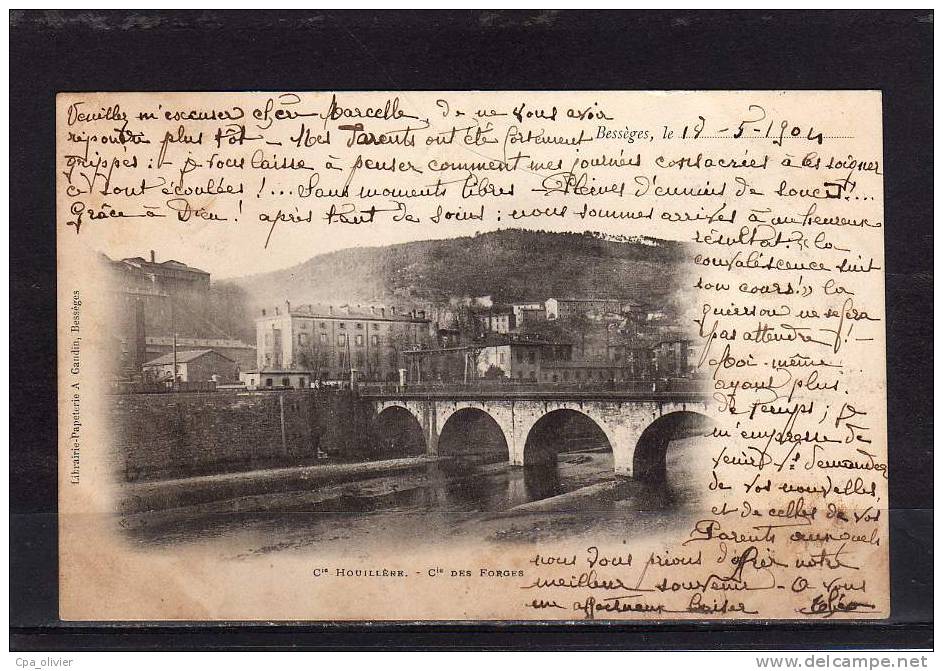 Veuillez m'excuser chère Marcelle, de ne vous avoir
répondre plus tôt - Mes Parents ont été fortement
Bessèges, le 18-5-1904
grippés : - je vous laisse à penser comment mes journées consacrées à les soigner
se sont écoulées !... Sans moments libres - Pleines d'ennuis de soucis !...
Grâce à Dieu ! après tant de soins ; nous sommes arrivés à un heureux
résultat : "la
convalescence suit
son cours !" la
guérison ne sera
pas attendre ! -
Moi-même
ayant plus
de temps ; je
m'empresse de
venir demander
de vos nouvelles,
et de celles de vos
Parents auxquels
nous vous prions d'offrir notre
meilleur souvenir - A vous
un affectueux baiser
Librairie-Papeterie A Gaudin, Bessèges
Cie HOUILLÈRE. - Cie DES FORGES
Cpa_olivier
http://www.delcampe.net